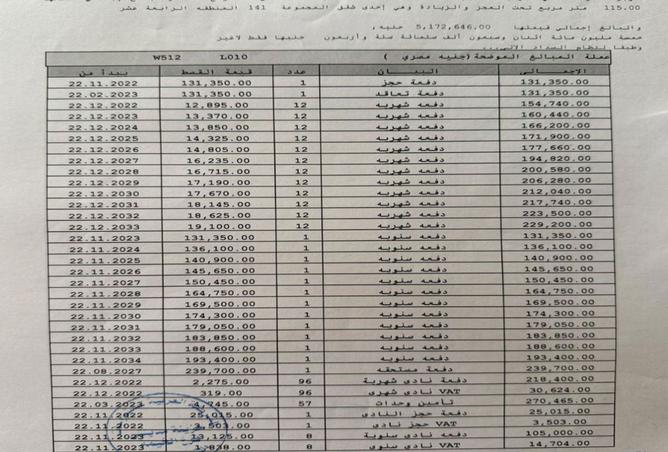 115.00 متر مربع تحت العجز والزيادة وهى إحدى شقق المجموعة 141 المنطقه الرابعة عشر
والبالغ إجمالي قيمتها 5,172,646.00 جنيه,
خمسة مليون مائة اثنان وسبعون ألف ستمائة ستة وأربعون جنيها فقط لاغير
وطبقا لنظام السداد الآتى...
عملة المبالغ الموضحة (جنيه مصري ) W512 L010
الإجمالي البيـــان عدد قيمة القسط يبدأ من
131,350.00 دفعة حجز 1 131,350.00 22.11.2022
131,350.00 دفعة تعاقد 1 131,350.00 22.02.2023
154,740.00 دفعه شهريه 12 12,895.00 22.12.2022
160,440.00 دفعه شهريه 12 13,370.00 22.12.2023
166,200.00 دفعه شهريه 12 13,850.00 22.12.2024
171,900.00 دفعه شهريه 12 14,325.00 22.12.2025
177,660.00 دفعه شهريه 12 14,805.00 22.12.2026
194,820.00 دفعه شهريه 12 16,235.00 22.12.2027
200,580.00 دفعه شهريه 12 16,715.00 22.12.2028
206,280.00 دفعه شهريه 12 17,190.00 22.12.2029
212,040.00 دفعه شهريه 12 17,670.00 22.12.2030
217,740.00 دفعه شهريه 12 18,145.00 22.12.2031
223,500.00 دفعه شهريه 12 18,625.00 22.12.2032
229,200.00 دفعه شهريه 12 19,100.00 22.12.2033
131,350.00 دفعه سنويه 1 131,350.00 22.11.2023
136,100.00 دفعه سنويه 1 136,100.00 22.11.2024
140,900.00 دفعه سنويه 1 140,900.00 22.11.2025
145,650.00 دفعه سنويه 1 145,650.00 22.11.2026
150,450.00 دفعه سنويه 1 150,450.00 22.11.2027
164,750.00 دفعه سنويه 1 164,750.00 22.11.2028
169,500.00 دفعه سنويه 1 169,500.00 22.11.2029
174,300.00 دفعه سنويه 1 174,300.00 22.11.2030
179,050.00 دفعه سنويه 1 179,050.00 22.11.2031
183,850.00 دفعه سنويه 1 183,850.00 22.11.2032
188,600.00 دفعه سنويه 1 188,600.00 22.11.2033
193,400.00 دفعه سنويه 1 193,400.00 22.11.2034
239,700.00 دفعة مستحقه 1 239,700.00 22.08.2027
218,400.00 دفعة نادى شهرية 96 2,275.00 22.12.2022
30,624.00 VAT نادى شهرى 96 319.00 22.12.2022
270,465.00 تأمين وحدات 57 4,745.00 22.03.2023
25,015.00 دفعة حجز النادى 1 25,015.00 22.11.2022
3,503.00 VAT حجز نادى 1 3,503.00 22.11.2022
105,000.00 دفعه نادى سنوية 8 13,125.00 22.11.2023
14,704.00 VAT نادى سنوى 8 1,838.00 22.11.2023